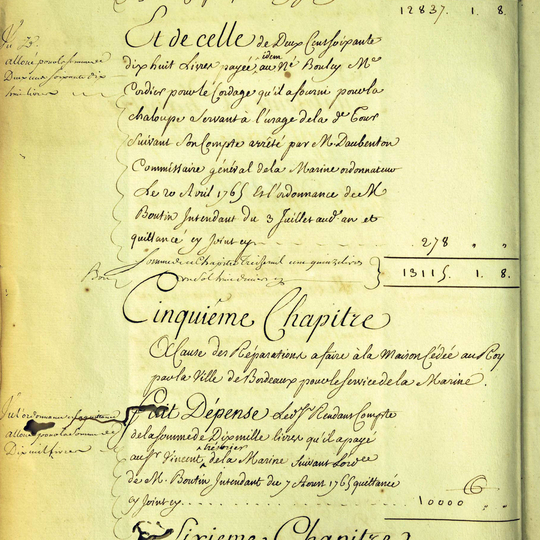 12837. 1. 8.
Et de celle de Deux Cent soixante
dix huit Livres payée au Me Bouley Me
idem
Cordier pour le Cordage qu'il a fourni pour la
chaloupe Servant à l'usage de la de Tour
Suivant Son Compte arrêté par M. Daubenton
Commissaire général de la Marine ordonnateur
Le 20 Avril 1765 Est l'ordonnance de M
Boutin Intendant du 3 Juillet aud. an et
quittance cy Joint cy
278 " "
Somme du Chapitre Treize mil cent quinze livres
Bon un Sol huit deniers cy
13115. 1. 8.
Cinquième Chapitre
A Cause des Réparations a faire à la Maison Cédée au Roy
par la Ville de Bordeaux pour le Service de la Marine.
Fait Dépense Led. Sr. Rendant Compte
de la somme de Dix mille livres qu'il a payé
au Sr Vincent de la Marine Suivant Lordce
trésorier
de M. Boutin Intendant du 7 Aoust 1765 quittance
cy Joint cy
10000 " "
Vu
alloué pour la somme de
Deux cent soixante dix
huit livres
Vu l'ordonnance et quittance
alloué pour la somme de
Dix mil livres
Sixieme Chapitre